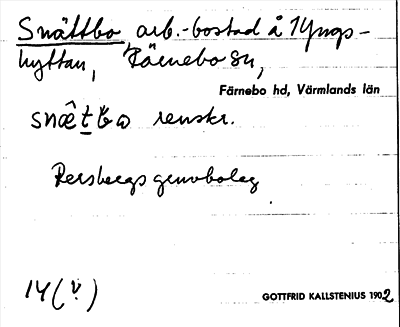 Snättbo, arb.-bostad å Yngs-
hyttan, Färnebo sn,
Färnebo hd, Värmlands län
renskr.
Persbergs gruvbolag
14 (v.)
GOTTFRID KALLSTENIUS 1902